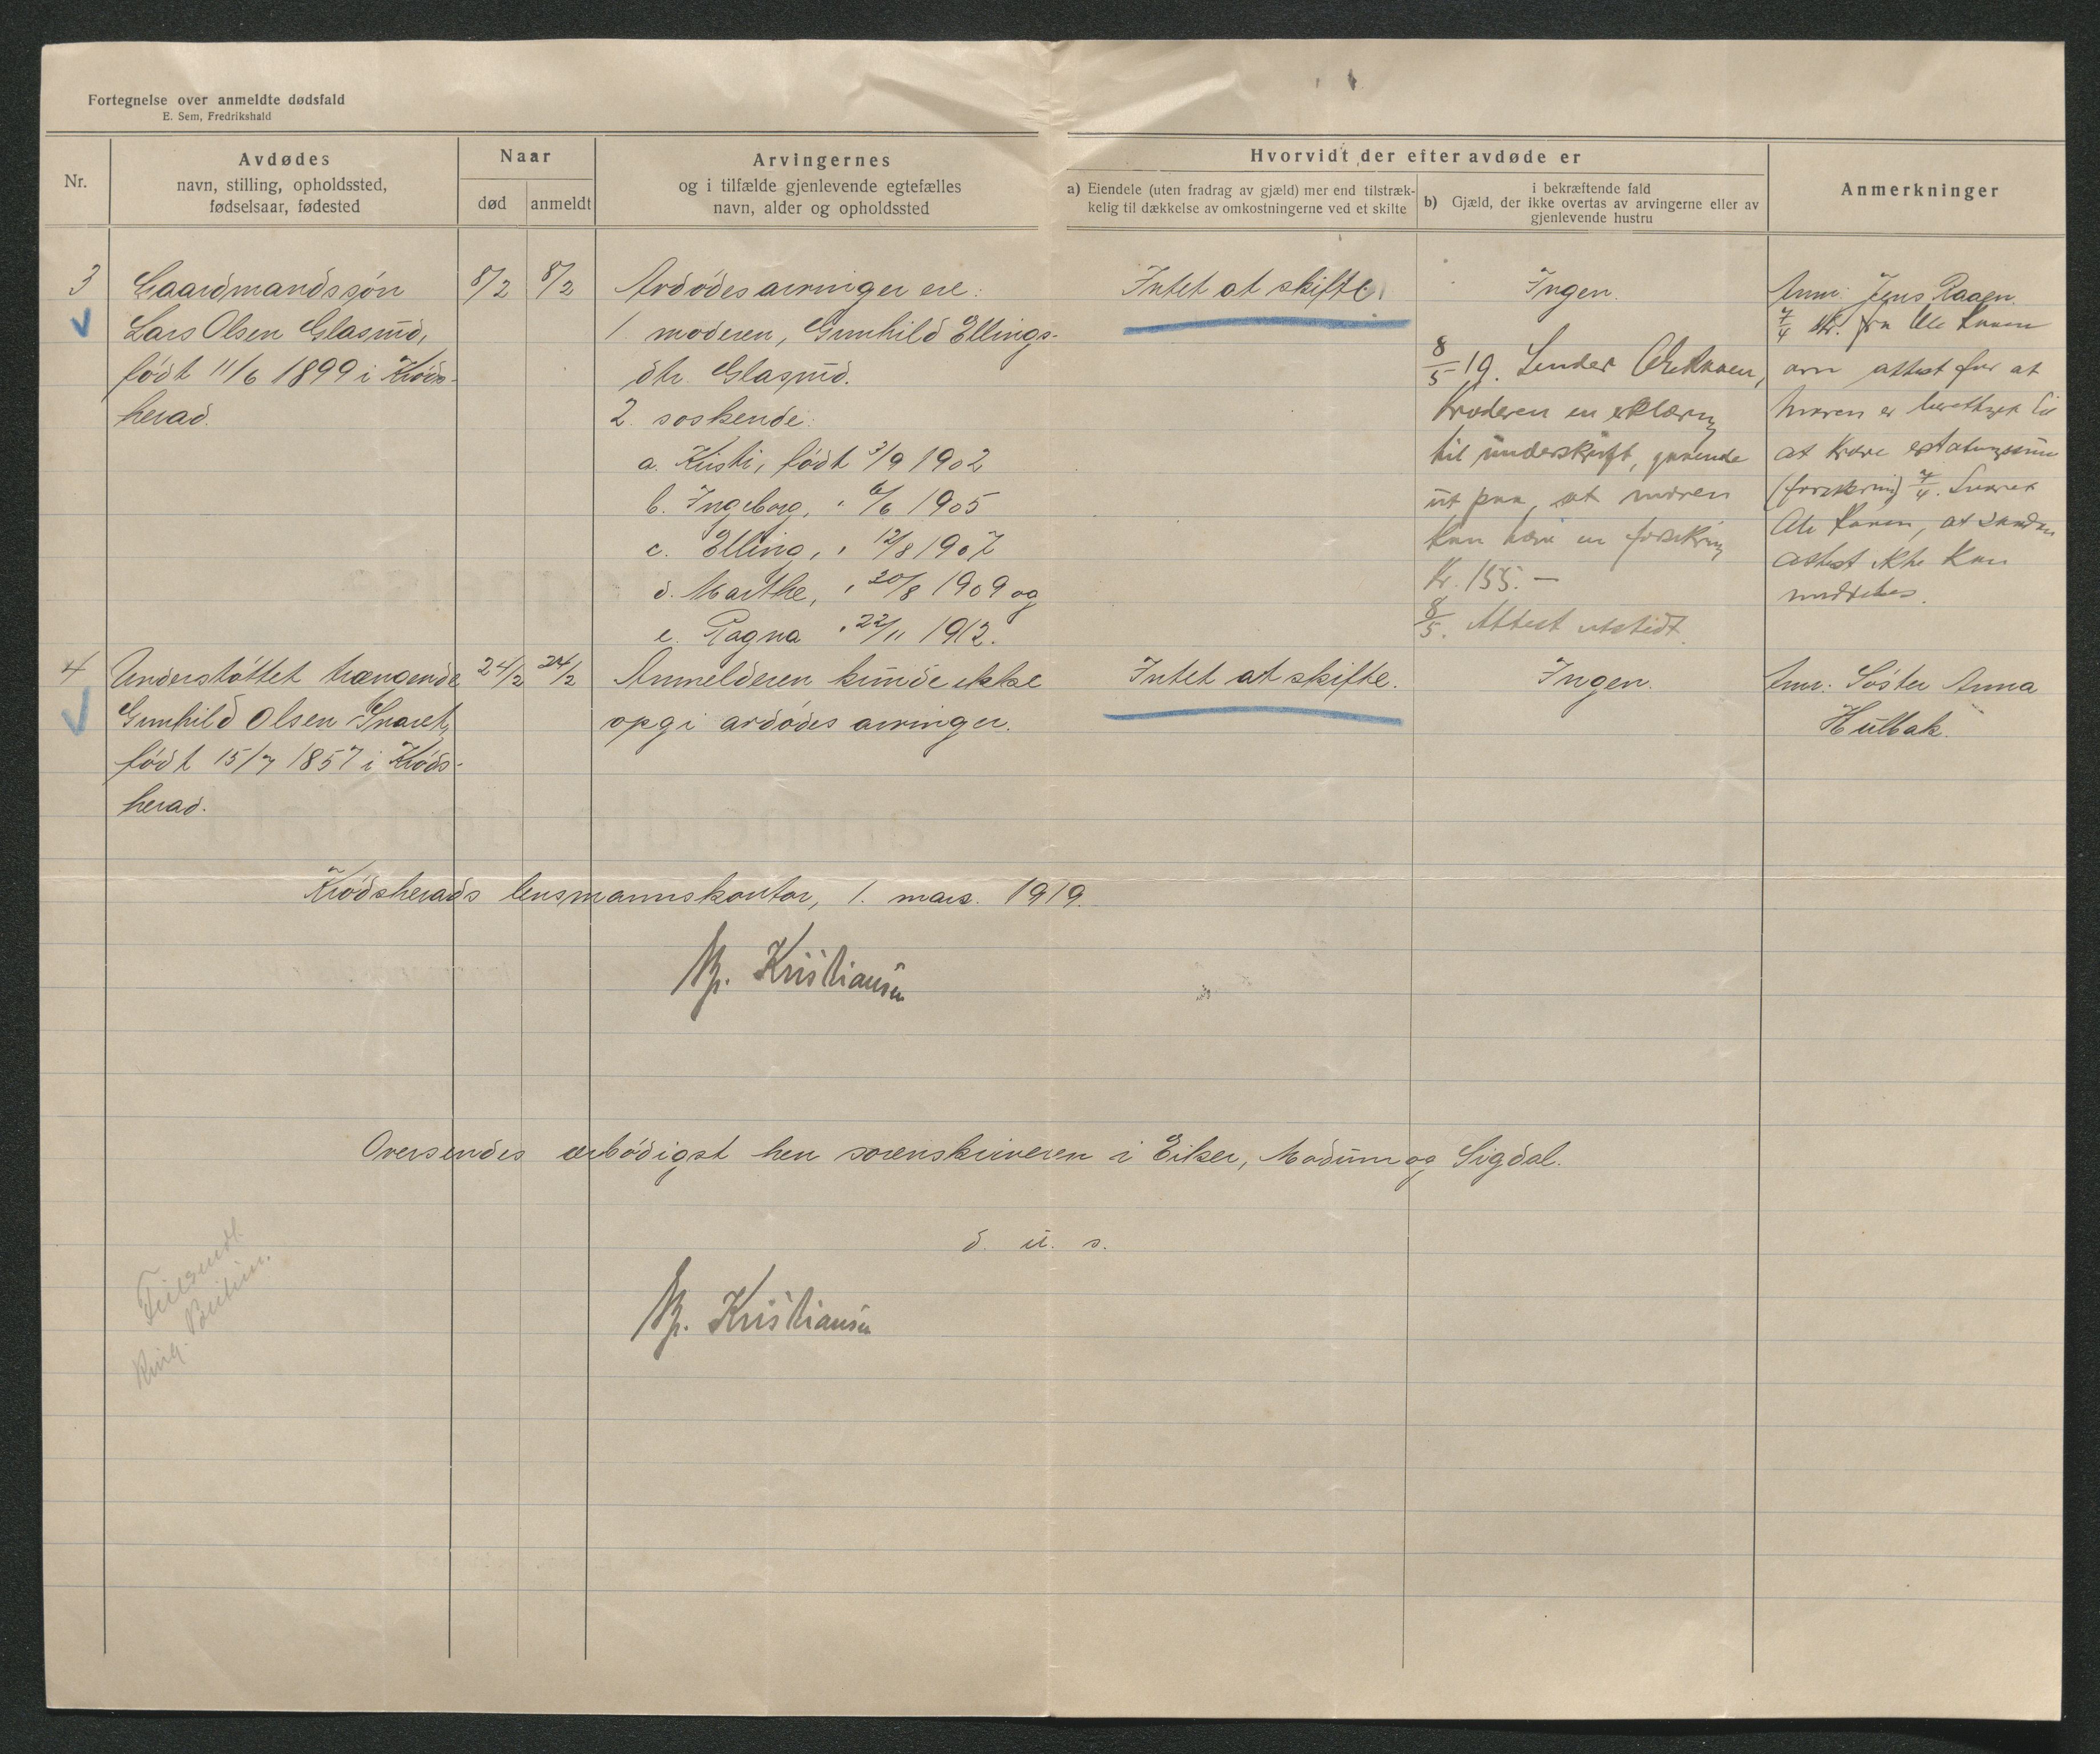 Fortegnelse over anmeldte dødsfald
E. Sem, Fredrikshald
Nr.
Avdødes
navn, stilling, opholdssted,
fødselsaar, fødested
Naar
død
anmeldt
Arvingernes
og i tilfælde gjenlevende egtefælles
navn, alder og opholdssted
Hvorvidt der efter avdøde er
a) Eiendele (uten fradrag av gjæld) mer end tilstræk-
kelig til dækkelse av omkostningerne ved et skifte
i bekræftende fald
b) Gjæld, der ikke overtas av arvingerne eller av
gjenlevende hustru
Anmerkninger
3
Gaardmandssøn
Lars Olsen Glasrud,
født 11/6 1899 i Krøds-
herad.
8/2
8/2
Avdødes arvinger ere:
1. moderen, Gunhild Ellings-
dtr. Glasrud.
2. søskende:
a. Kristi, født 3/9 1902
b. Ingeborg, " 6/6 1905
c. Elling, " 12/8 1907
d. Marthe, " 20/8 1909 og
e. Ragna " 22/11 1912.
Intet at skifte.
Ingen.
8/5 19. Sender
Krøderen en erklæring
til underskrift, gaaende
ut paa, at moren
kan hæve en forsikring
Kr. 155.-
8/5. Attest utstedt.
Anm: Jens Raaen.
7/4 Skr. fra Ole
om attest for at
moren er berettiget til
at kræve
(forsikring) 7/4. Svaret
Ole, at saadan
attest ikke kan
meddeles.
4
Understøttet trængende
Gunhild Olsen Snaret,
født 15/7 1857 i Krøds-
herad.
24/2
24/2
Anmelderen kunde ikke
opgi avdødes arvinger.
Intet at skifte.
Ingen.
Anm: Søster Anna
Hulbak.
Krødsherads lensmannskontor, 1. mars. 1919.
Kristiansen
Oversendes ærbødigst herr sorenskriveren i Eiker, Modum og Sigdal.
d. u. s.
Kristiansen